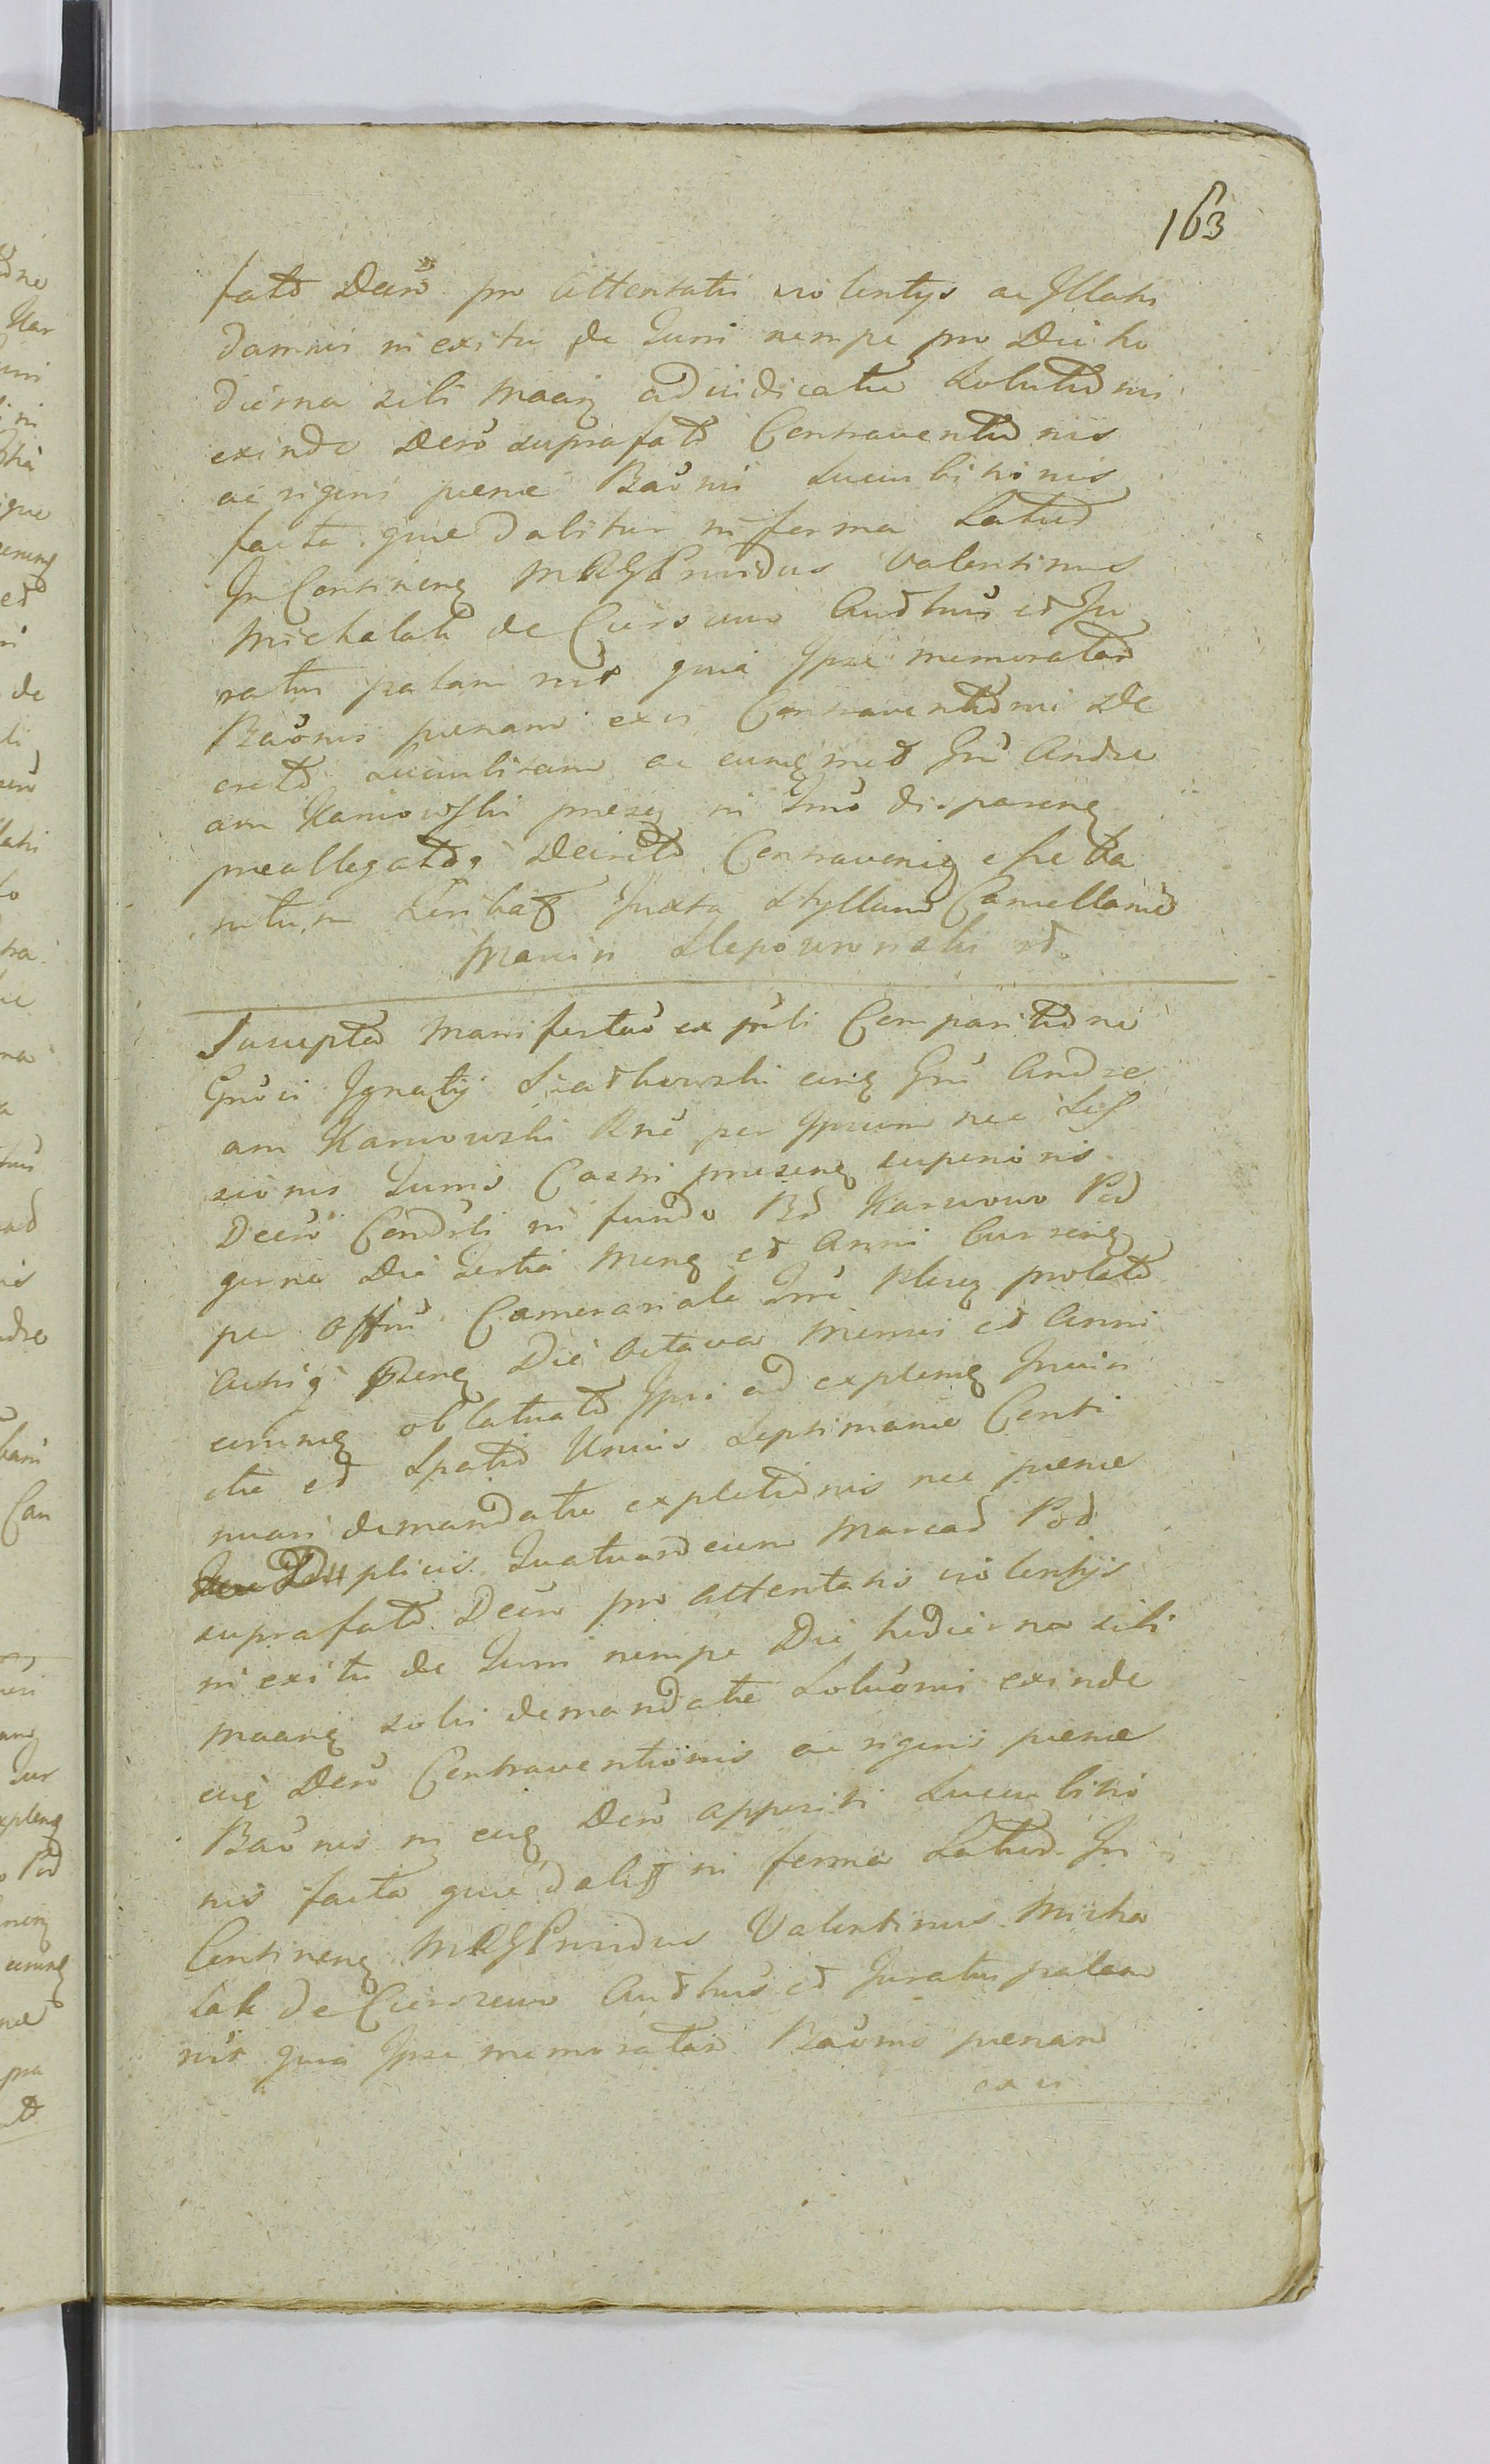 163
fato Decro pro attentatis violentys ac Illatis
damnis in exitu de Turri nempe pro Die ho
dierna sibi Maag adiudicatae Solutionis
exinde Decro suprafato Contraventionis
ac rigeri paenae Baonis Succubitionis
facta. quae dabitur in forma Latius
In Continen MRGProvidus Valentinus
Michalak de Cierszewo Authus et Ju
ratus palam reit quia Ipse memoratam
Baonis paenam ex vi Contraventionis De
creto succubitam ac eung met Gnu Andre
am Karwowski praesen in Turro disparen
praeallegatoq Decreto Contravenien e
scribat Juxta Styllum Cancellariae
Marcin Slepowronski
Suscepta Manifestao ex prli Comparitione
Grosi Ignatij Siatkowski eunq Gnu Andre
am Karwowski Rne per Ipsum nec Ses
sionis Turris Castri praesen superioris
Decro Condrli in fundo Bd Karwowo Pod
gorne Die tertia Mens et Anni Curren
per Offm Camerariale Trre prolato
Actisq Pzen Die Octava Mensis et Anni
eorunq oblatuato Ipsi ad explen
et Spatio Unius Septimanae Conti
nuari demandatae expletionis nec paenae
Duplicis Quatuordecim Marcar Pod
suprafato Decro pro attentatis violentijs
in exitu de Turri nempe Die hodierna sibi
Maan solvi demandatae Soluonis exinde
eiq Decro Contraventionis ac rigeris paenae
Baonis in eiq Decro appositi Succubitio
nis facta quae dabit in forma Latius In
Continen MRGProvidus Valentinus Micha
lak de Cierszewo Authus et Juratus palam
reit quia Ipse memoratam Baonis paenam
ex vi